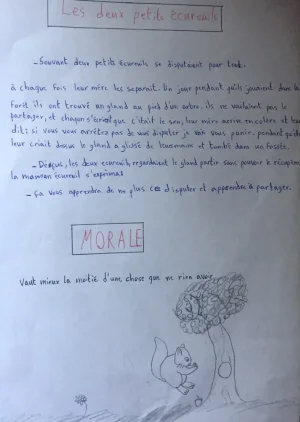 Les deux petits écureuils
- Souvant deux petits écureuils se disputaient pour tout.
à chaque fois leur mère les separait. Un jour pendant qu'ils jouaient dans la
Forêt ils ont trouvé un gland au pied d'un arbre. ils ne voulaient pas le
partager, et chaque s'écriai que c'était le sien, leur mère arriva en colère et leur
dit: si vous vous arrêtez pas de vous disputer je vais vous punir. pendant qu'elle
leur criait dessus le gland a glissé de leur main et tombé dans un fossée.
- Déçus, les deux écureuils, regardaient le gland partir sans pouvoir le récupérer
la maman écureuil s'exprima:
- ça vous apprendra de ne plus ce disputer et apprendre à partager.
MORALE
Vaut mieux la moitié d'une chose que ne rien avoir.